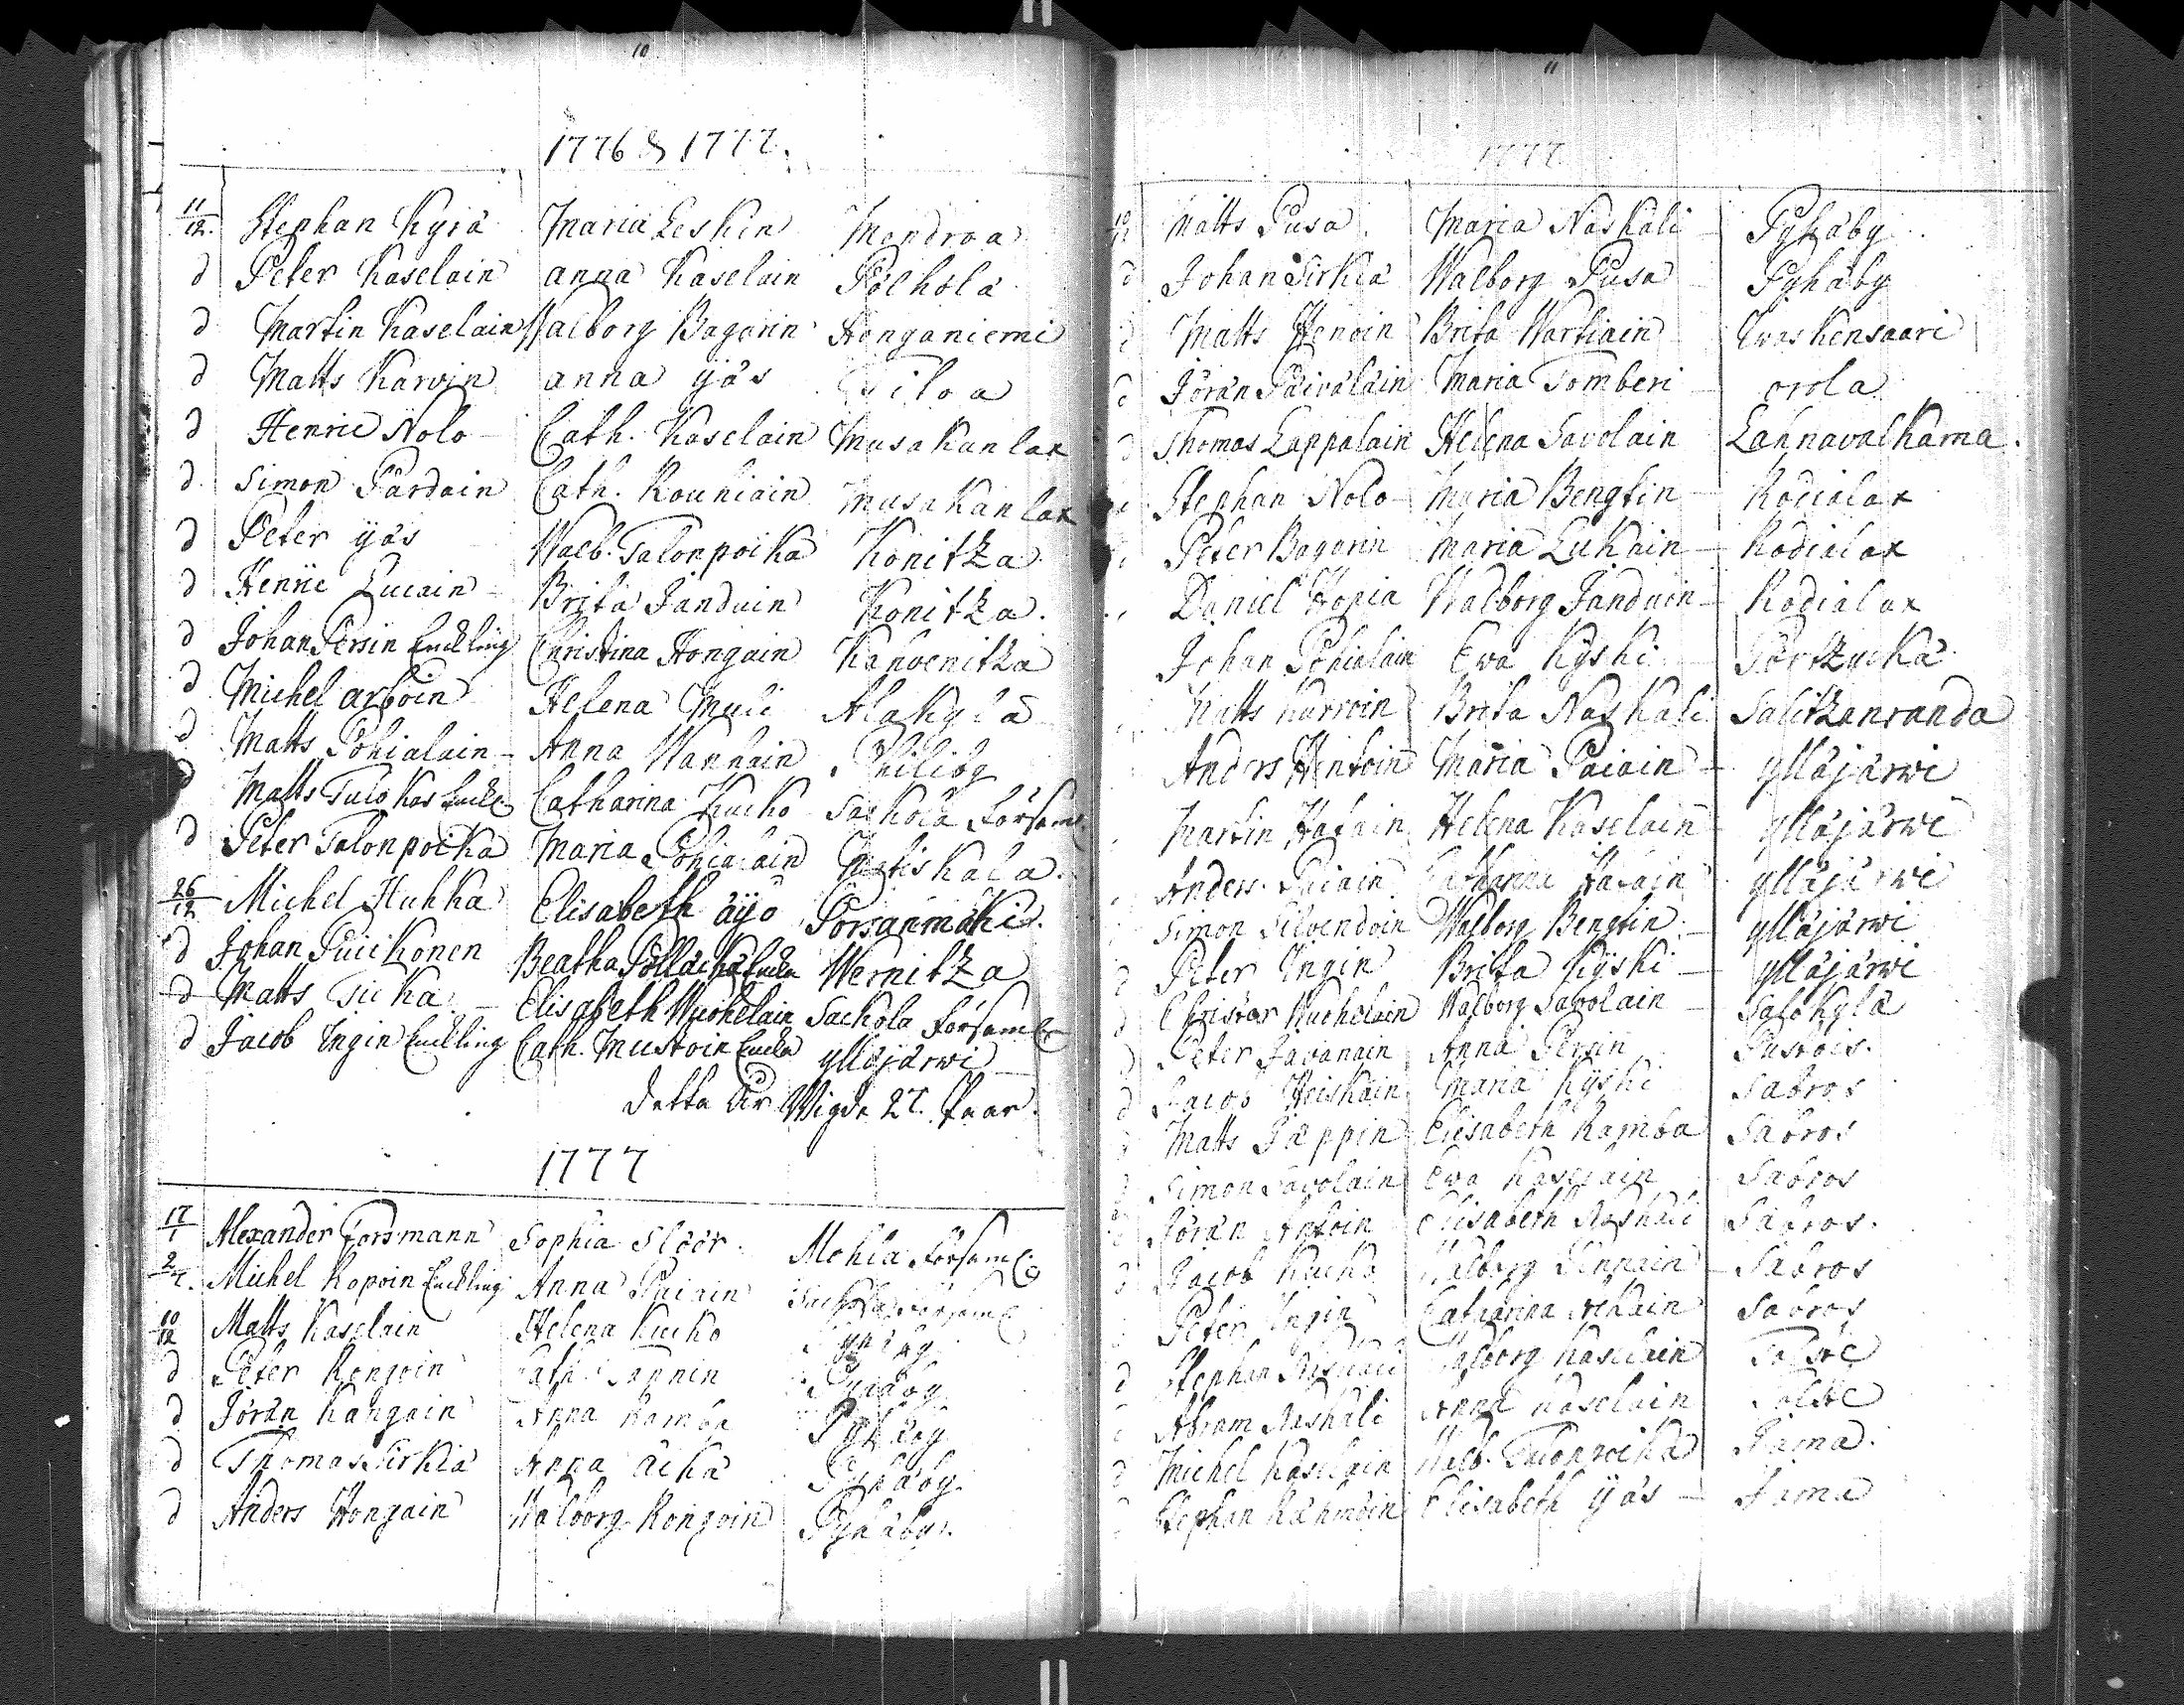 10
1776 & 1777.
11/12. Stephan Kyrä Maria Leskin Mondroa
d Peter Kaselain anna Kaselain Pölhölä
d Martin Kaselain Walborg Bagarin Honganiemi
d Matts Karvin anna yäs
d Henric Nolo Cath. Kaselain Musakanlax
d. Simon Pärdäin Cath. Rouhiain Musakanlax
d Peter yäs Walb. Talonpoika Konitza
d Henric Lucain Brita Janduin Konitza.
d Johan Persin Enckling Christina Hongain Kanvenitza
d Michel arboin Helena Muli Alakylä
d Matts Pohialain Anna Wanhain Philiby
d Matts Tulokas Enckl Catharina Kucko Sackola Församl.
d Peter Talonpoika Maria Pohialain
26/12 Michel Hukka Elisabeth äijö Porsanmäki.
d Johan Puickonen Beatha Pölläckä Enckl Wernitza
d Matts Sicka Elisabeth Wuohelain Sackola Församl
d Jacob Ingin Enckling Cath. Mustoin Enckl yllöjärwi
detta År Wigde 27. Paar.
1777
17/1 Alexander Forsmann Sophia Slöör. Mohla Församl
2/2. Michel Kopoin Enckling Anna Paiain Sackola Församl
10/12 Matts Kaselain Helena Kucko
d Peter Rongoin Pyhäby
d Jöran Kangain Anna Kamba Pyhäby
d Thomas Sirkiä Anna äikä Pyhäby.
d Anders Hongain Walborg Rongoin Pyhäby.
11
1777
10/12 Matts Pusa. Maria Naskali Pyhäby.
d Johan Sirkiä Walborg Pusa Pyhäby
d Matts Henoin Brita Wartiain Uvaskensaari
d Jöran Päiväläin Maria Tomberi orola
d Thomas Lappalain Helena Savolain Lahnavalkama.
Stephan Nolo Maria Bengtin Rödialax
Peter Bagarin Maria Lukain Rödialax
Daniel Hopia Walborg Janduin Rödialax
Johan Pohialain Ewa Kyski Pörtzuckä
Matts Karvoin Brita Naskali Salitzanranda
Anders Hentoin Maria Paiain ylläjärwi
Martin Hatain Helena Kaselain ylläjärwi
Anders Paiain Catharina Hatain ylläjärwi
Simon Silvendoin Walborg Bengtin ylläjärwi
d Peter Ingin Brita Kyski ylläjärwi
d Christer Wuohelain Walborg Savolain Salokylä
d Peter Javanain Anna Persin Pustois.
d Jacob Heiskain Maria Kyski Sabros
Matts Pæppin Elisabeth Kamba Sabros
Simon Savolain Ewa Kaselain Sabros
Jöran Antoin Elisabeth Naskali Sabros.
Jacob Kucko Walborg Sabros
Peter Ingin Catharina Sabros
d Stephan Naskali Walborg Kaselain
Abram Naskali Anna Kaselain
d Michel Kaselain Walb. Talonpoika Jama.
Stephan Elisabeth yäs Jama